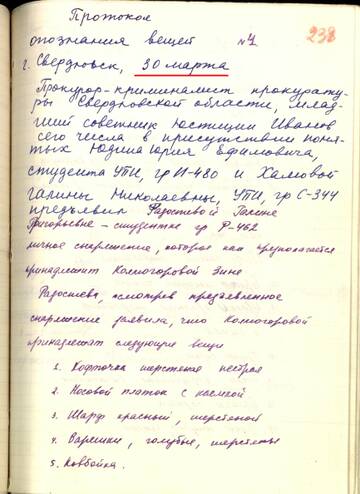 Протокол
опознания вещей №1
238
г. Свердловск, 30 марта
Прокурор-криминалист прокурату-
ры Свердловской области, млад-
ший советник юстиции Иванов
сего числа в присутствии поня-
тых Юдина Юрия Ефимовича,
студента УПИ, гр И-480 и Хамовой
Галины Николаевны, УПИ, гр С-344
предъявил Радостевой Галине
Григорьевне – студентке гр Р-462
личное снаряжение, которое как предполагается
принадлежит Колмогоровой Зине
Радостева, осмотрев предъявленное
снаряжение заявила, что Колмогоровой
принадлежат следующие вещи
1. Кофточка шерстяная пестрая
2. Носовой платок с каемкой
3. Шарф красный, шерстяной
4. Варежки, голубые, шерстяные
5. Ковбойка.